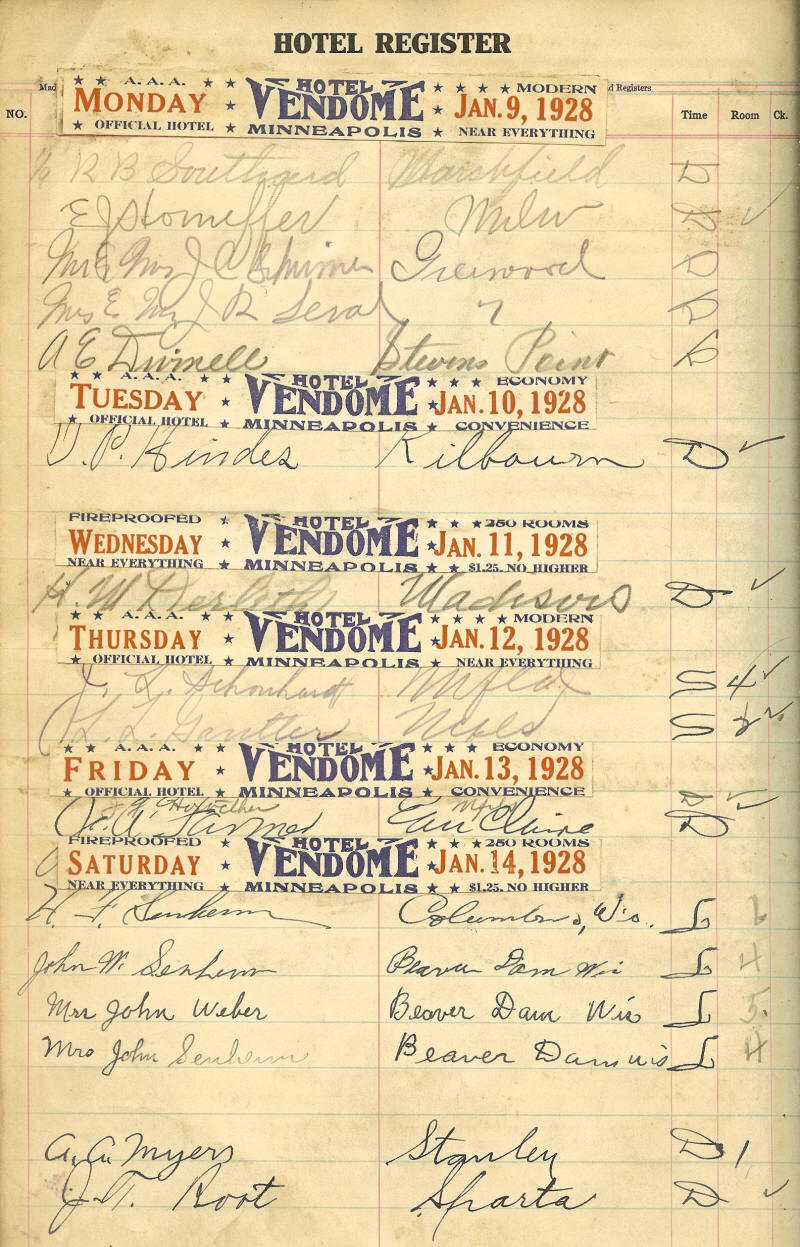 HOTEL REGISTER
Mad d Registers
NO. Time Room Ck.
★ ★ A.A.A. ★ HOTEL ★ ★ ★ ★ MODERN
MONDAY ★ VENDOME ★ JAN. 9, 1928
★ OFFICIAL HOTEL ★ MINNEAPOLIS ★ NEAR EVERYTHING
R B Southard Marshfield D
E J Milw D ✓
Mr & Mrs J C Greenwood D
Mrs & J R " D
A E Dwinell Stevens Point D
★ ★ A.A.A. ★ HOTEL ★ ★ ★ ECONOMY
TUESDAY ★ VENDOME ★ JAN. 10, 1928
★ OFFICIAL HOTEL ★ MINNEAPOLIS ★ CONVENIENCE
P. Hindes Kilbourn D ✓
FIREPROOFED ★ HOTEL ★ ★ ★ 250 ROOMS
WEDNESDAY ★ VENDOME ★ JAN. 11, 1928
NEAR EVERYTHING ★ MINNEAPOLIS ★ ★ $1.25. NO HIGHER
H. M Derleth Madison D ✓
★ ★ A.A.A. ★ HOTEL ★ ★ ★ ★ MODERN
THURSDAY ★ VENDOME ★ JAN. 12, 1928
★ OFFICIAL HOTEL ★ MINNEAPOLIS ★ NEAR EVERYTHING
J. L. Schonhardt Mfld S 4 ✓
L. L. Gautter Mpls S
★ ★ A.A.A. ★ ★ HOTEL ★ ★ ★ ECONOMY
FRIDAY ★ VENDOME ★ JAN. 13, 1928
★ OFFICIAL HOTEL ★ MINNEAPOLIS ★ CONVENIENCE
D ✓
Eau Claire D
FIREPROOFED ★ HOTEL ★ ★ ★ 250 ROOMS
SATURDAY ★ VENDOME ★ JAN. 14, 1928
NEAR EVERYTHING ★ MINNEAPOLIS ★ ★ $1.25. NO HIGHER
H. F. Senheim Columbus, Wis. L
John W. Senheim Beaver Dam Wis L 4
Mrs John Weber Beaver Dam Wis L 5
Mrs John Senheim Beaver Dam wis L 4
A. A. Myers Stanley D 1
J. T. Root Sparta D ✓